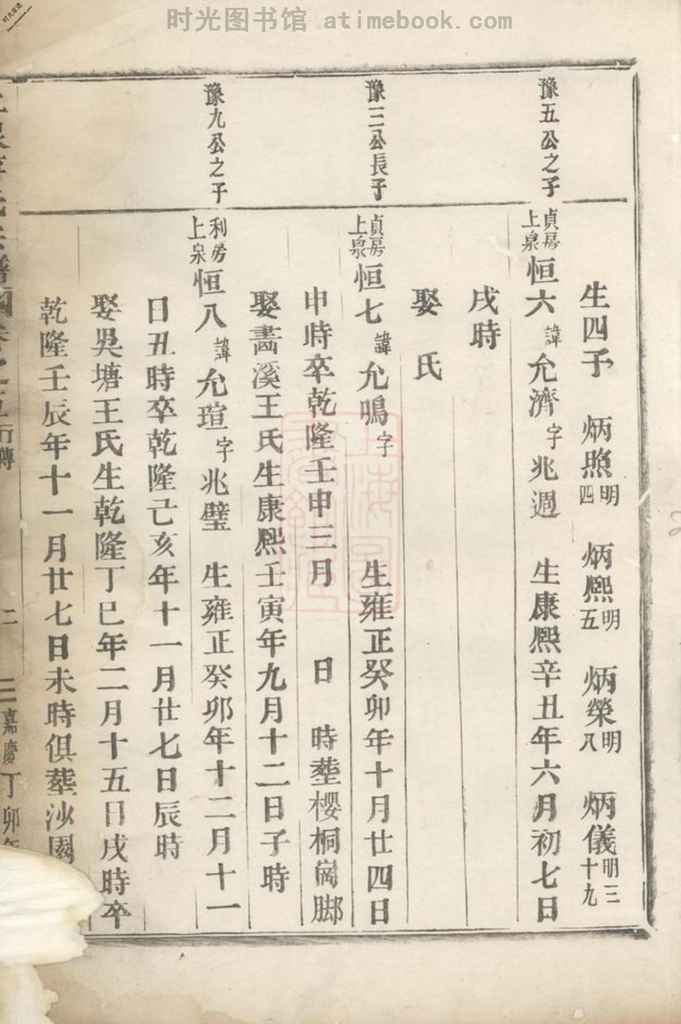 时光图书馆 atimebook.com
生四子 炳照明四 炳熙明五 炳榮明八 炳儀明三十九
豫五公之子
貞房上泉恒六諱允濟字兆週 生康熙辛丑年六月初七日
戌時
娶 氏
豫三公長子
貞房上泉恒七諱允鳴字 生雍正癸卯年十月廿四日
申時卒乾隆壬申三月 日 時塟櫻桐崗脚
娶畵溪王氏生康熙壬寅年九月十二日子時
豫九公之子
利房上泉恒八諱允瑄字兆璧 生雍正癸卯年十二月十一
日丑時卒乾隆己亥年十一月廿七日辰時
娶吳塘王氏生乾隆丁巳年二月十五日戌時卒
乾隆壬辰年十一月廿七日未時俱塟沙園
行傳 二 嘉慶丁卯年